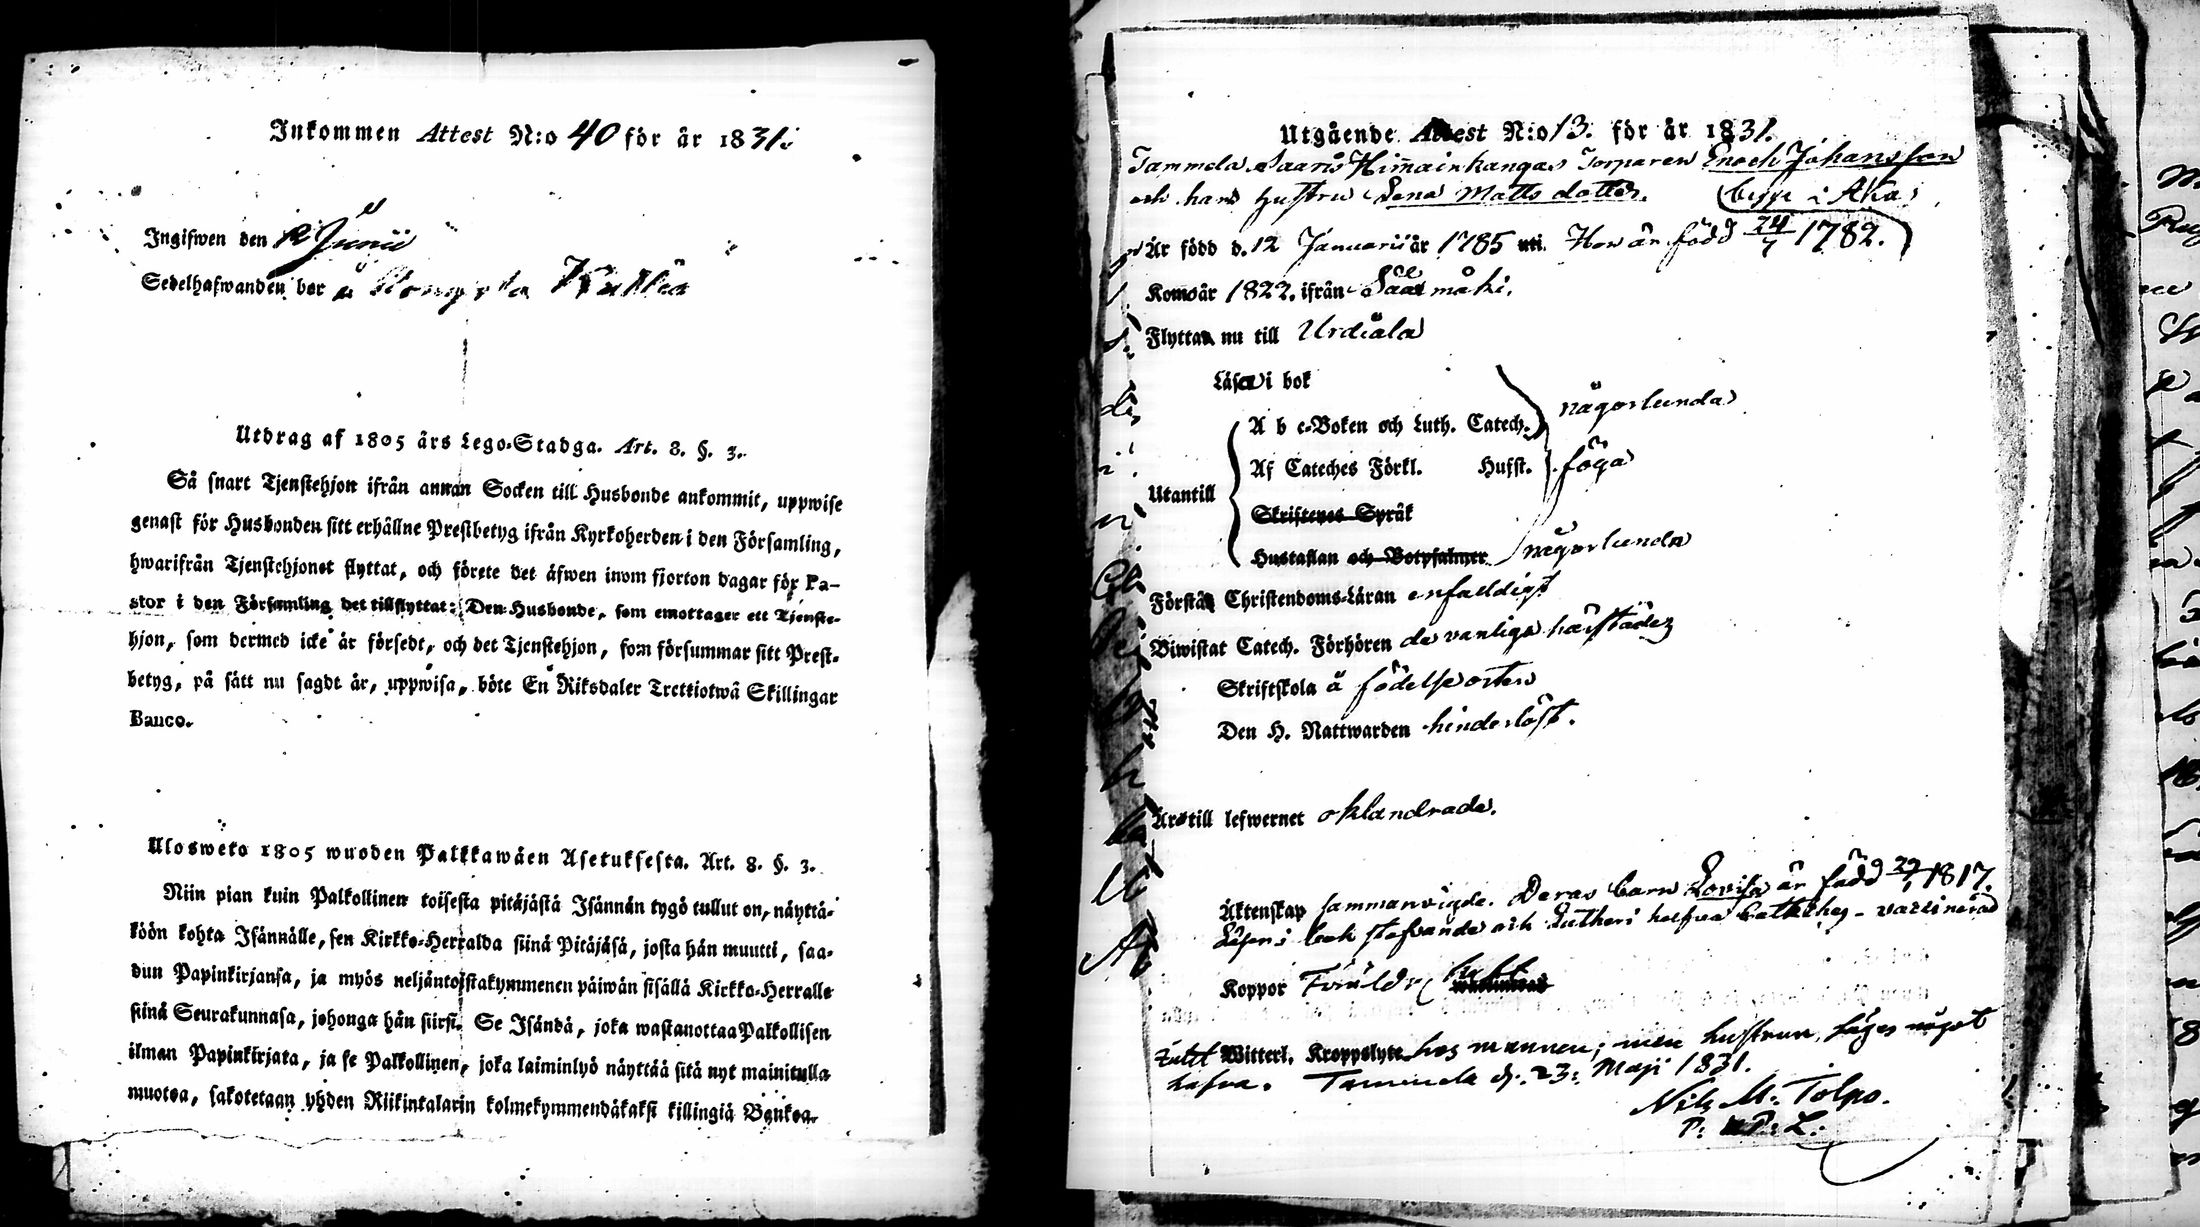 Inkommen Attest N:o 40 för år 1831.
Ingifwen den 12 Junii
Sedelhafwanden bor å Kallia
Utdrag af 1805 års Lego-Stadga. Art. 8. §. 3.
Så snart Tjenstehjon ifrån annan Socken till Husbonde ankommit, uppwise
genast för Husbonden sitt erhållne Prestbetyg ifrån Kyrkoherden i den Församling,
hwarifrån Tjenstehjonet flyttat, och förete det äfwen inom fjorton dagar för Pa-
stor i den Församling det tillflyttat: Den Husbonde, som emottager ett Tjenste-
hjon, som dermed icke är försedt, och det Tjenstehjon, som försummar sitt Prest-
betyg, på sätt nu sagdt är, uppwisa, böte En Riksdaler Trettiotwå Skillingar
Banco.
Ulosweto 1805 wuoden Palkkawäen Asetuksesta. Art. 8. §. 3.
Niin pian kuin Palkollinen toisesta pitäjästä Isännän tygö tullut on, näyttä-
köön kohta Isännälle, sen Kirkko-Herralda siinä Pitäjäsä, josta hän muutti, saa-
dun Papinkirjansa, ja myös neljäntoistakymmenen päiwän sisällä Kirkko-Herralle
siinä Seurakunnasa, johonga hän siirsi. Se Isändä, joka wastanottaa Palkollisen
ilman Papinkirjata, ja se Palkollinen, joka laiminlyö näyttää sitä nyt mainitulla
muotoa, sakotetaan yhden Riikinkalarin kolmekymmendäkaksi killingiä Bankoa.
Utgående Attest N:o 13. för år 1831.
Tammela Saaris Himainkangas Torparen Enoch Johansson
och hans hustru Lena Matts dotter. (begge i Aka)
Är född d. 12 Januarii år 1785 uti Hon är född 24/7 1782.
Kom år 1822. ifrån Sääxmäki.
Flyttar nu till Urdiala
Läsa i bok
A b c-Boken och Luth. Catech. någorlunda
Utantill
Af Cateches Förkl. Hufst. föga
Skriftenes Språk
Hustaflan och Botpsalmer någorlunda
Förstår Christendoms-Läran enfaldigt
Biwistat Catech. Förhören de vanliga härstädes
Skriftskola å födelseorten
Den H. Nattwarden hinderlöst.
Äro till lefwernet oklandrade.
Äktenskap sammanvigde. Deras barn Lovisa är född 29/1 1817.
Läser i bok stafvande och Lutheri halfva Cateches - vaccinerad
Koppor
Witterl. Kroppslyte hos mannen; men hustrun säges något
hafva. Tammela d. 23: Maji 1831.
Nils M: Tolpo.
P: L: